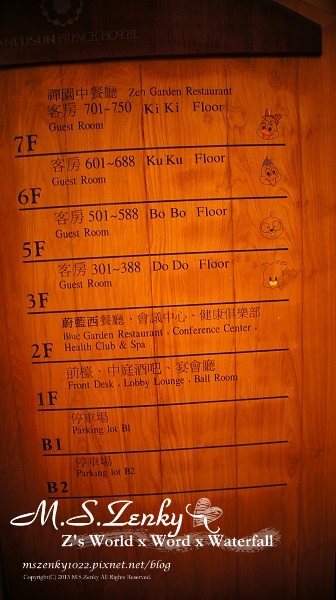 USUN PRINCE HOTEL
禪園中餐廳 Zen Garden Restaurant
客房 701~750 Ki Ki Floor
Guest Room
7F
客房 601~688 Ku Ku Floor
Guest Room
6F
客房 501~588 Bo Bo Floor
Guest Room
5F
客房 301~388 Do Do Floor
Guest Room
3F
蔚藍西餐廳、會議中心、健康俱樂部
Blue Garden Restaurant、Conference Center、
Health Club & Spa
2F
前檯、中庭酒吧、宴會廳
Front Desk、Lobby Lounge、Ball Room
1F
停車場
Parking lot B1
B1
停車場
Parking lot B2
B2
M.S.Zenky
Z's World x Word x Waterfall
mszenky1022.pixnet.net/blog
Copyright(C) 2013 M.S.Zenky All Rights Reserved.